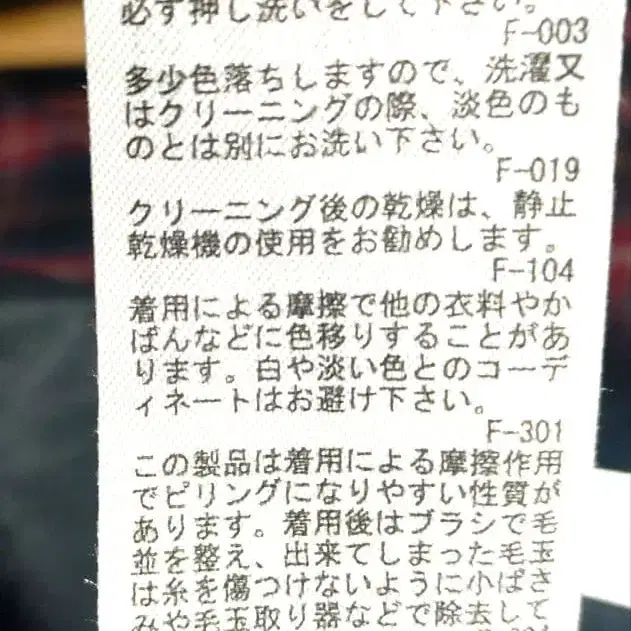 必ず押し洗いをして下さい。
F-003
多少色落ちしますので、洗濯又
はクリーニングの際、淡色のも
のとは別にお洗い下さい。
F-019
クリーニング後の乾燥は、静止
乾燥機の使用をお勧めします。
F-104
着用による摩擦で他の衣料やか
ばんなどに色移りすることがあ
ります。白や淡い色とのコーデ
ィネートはお避け下さい。
F-301
この製品は着用による摩擦作用
でピリングになりやすい性質が
あります。着用後はブラシで毛
並を整え、出来てしまった毛玉
は糸を傷つけないように小ばさ
みや毛玉取り器などで除去して